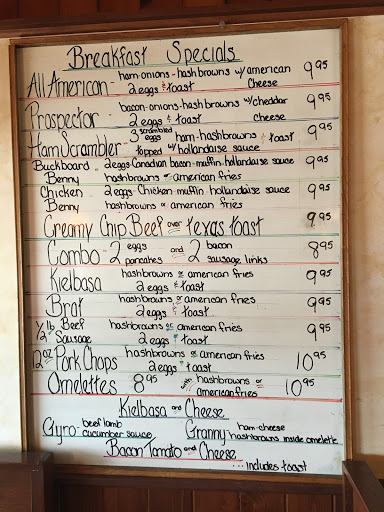 Breakfast Specials
All American - ham-onions-hashbrowns w/american cheese 9.95
2 eggs & toast
Prospector - bacon-onions-hashbrowns w/cheddar cheese 9.95
2 eggs & toast
Ham Scrambler - 3 scrambled eggs ham-hashbrowns & toast 9.95
topped w/hollandaise sauce
Buckboard - 2 eggs-Canadian bacon-muffin-hollandaise sauce 9.95
Benny hashbrowns or american fries
Chicken 2 eggs-Chicken-muffin-hollandaise sauce 9.95
Benny hashbrowns or american fries
Creamy Chip Beef over Texas Toast 9.95
Combo - 2 eggs pancakes and 2 bacon sausage links 8.95
Kielbasa hashbrowns or american fries 9.95
2 eggs & toast
Brat hashbrowns or american fries 9.95
2 eggs & toast
1/2 lb Beef Sausage hashbrowns or american fries 9.95
2 eggs & toast
12 oz Pork Chops hashbrowns or american fries 10.95
2 eggs & toast
Omelettes 8.95 with hashbrowns or american fries 10.95
Kielbasa and Cheese
Gyro - beef lamb cucumber sauce Granny ham-cheese hashbrowns inside omelette
Bacon Tomato and Cheese
...includes toast